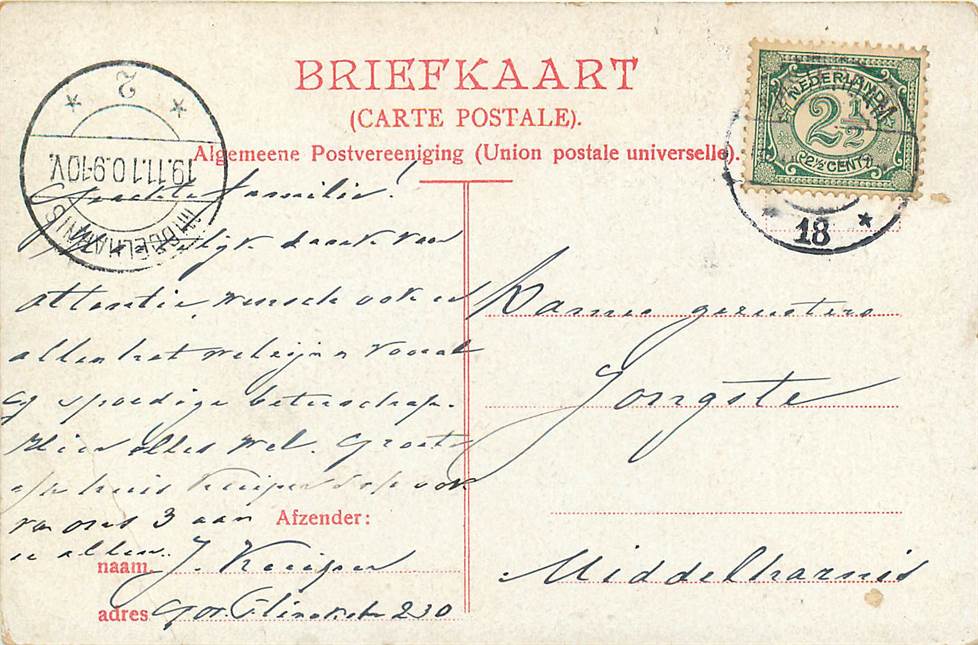 BRIEFKAART
(CARTE POSTALE).
Algemeene Postvereeniging (Union postale universelle).
NEDERLAND
2½
2½ CENT
18
2
19.11.10.9-10V.
MIDDELHARNIS
Geachte familie!
Hartelijk dank voor
attentie, wensch ook u
allen het welzijn vooral
spoedige beterschap.
Hier alles wel. Groet
huis Kuiper ook
van ons 3 aan
u allen.
Afzender:
naam. J. Kuiper
adres Gov. Flinckstr 230
Dames gezusters
Jongste
Middelharnis